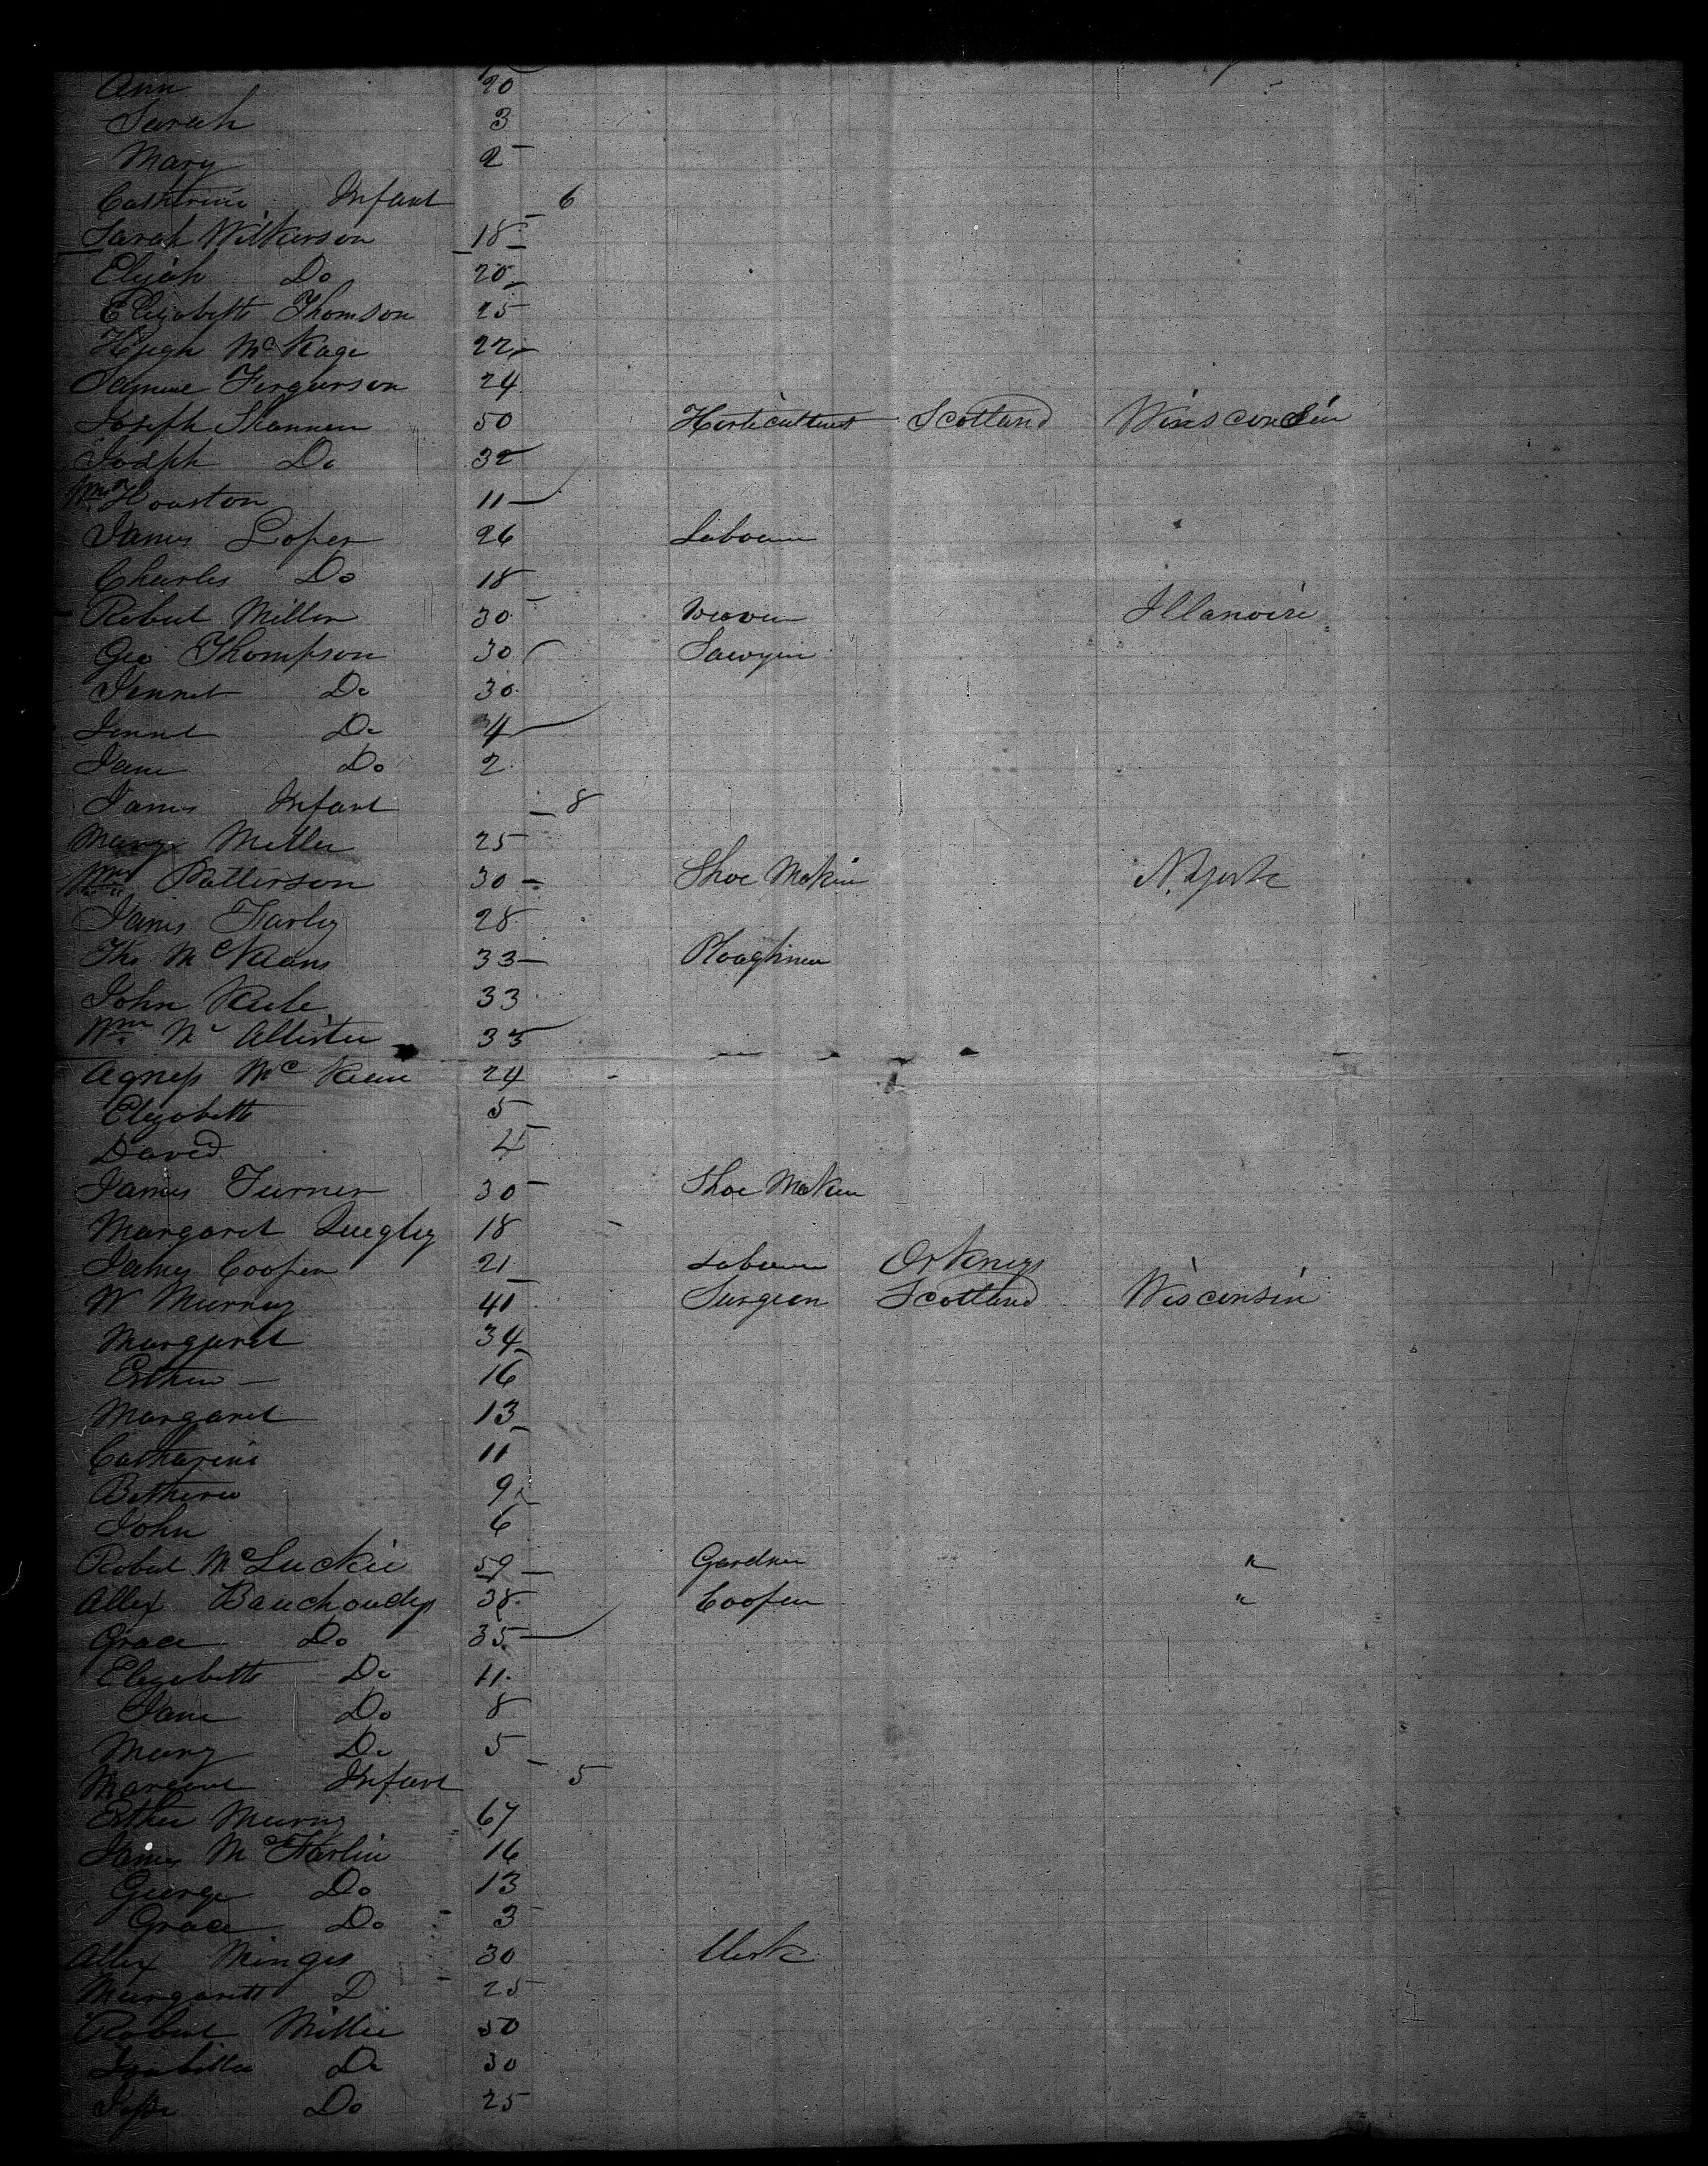 Ann 20
Sarah 3
Mary 2
Catherine Infant 6
Sarah Wilkerson 18
Elijah Do 20
Elizabeth Thomson 25
Hugh McKage 22
Samuel Fergurson 24
Joseph Shannon 50 Horticulturist Scotland Winsconsin
Joseph Do 32
Houston 11
James Loper 26 Labourer
Charles Do 18
Robert Miller 30 Weaver Illanoire
Geo Thompson 30 Sawyer
Jennet Do 30
Jennet Do 4
Jane Do 2
James Infant 8
Mary Miller 25
Patterson 30 Shoe Maker N. York
James Farley 28
Ths McKeans 33 Ploughman
John Kule 33
Wm Mc Allister 35
Agness Mc Kean 24
Elizabeth 5
David 4
James Turner 30 Shoe Maker
Margaret Quegley 18
James Cooper 21 Labourer Orkneys
W Murray 41 Surgeon Scotland Wisconsin
Margaret 34
Esther 16
Margaret 13
Catharine 11
9
John 6
Robert McLuckie 59 Gardner "
Allex Bauchoudy 38 Cooper "
Grace Do 35
Elizabeth Do 11
Jane Do 8
Mary Do 5
Margaret Infant 5
Esther Murray 67
James McFarlin 16
George Do 13
Grace Do 3
Allex Minges 30 Clerk
Margarett D 25
Robert Millie 50
Isabella Do 30
Jesse Do 25